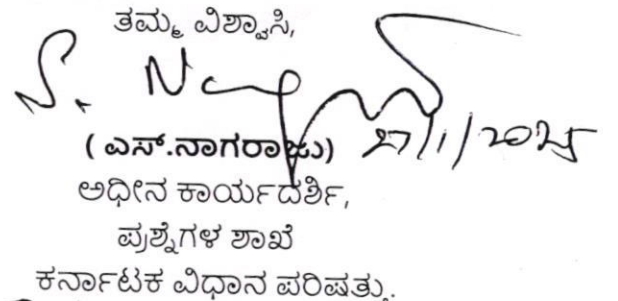 ತಮ್ಮ ವಿಶ್ವಾಸಿ,
S. Nag
( ಎಸ್.ನಾಗರಾಜು)
ಅಧೀನ ಕಾರ್ಯದರ್ಶಿ,
ಪ್ರಶ್ನೆಗಳ ಶಾಖೆ
ಕರ್ನಾಟಕ ವಿಧಾನ ಪರಿಷತ್ತು.